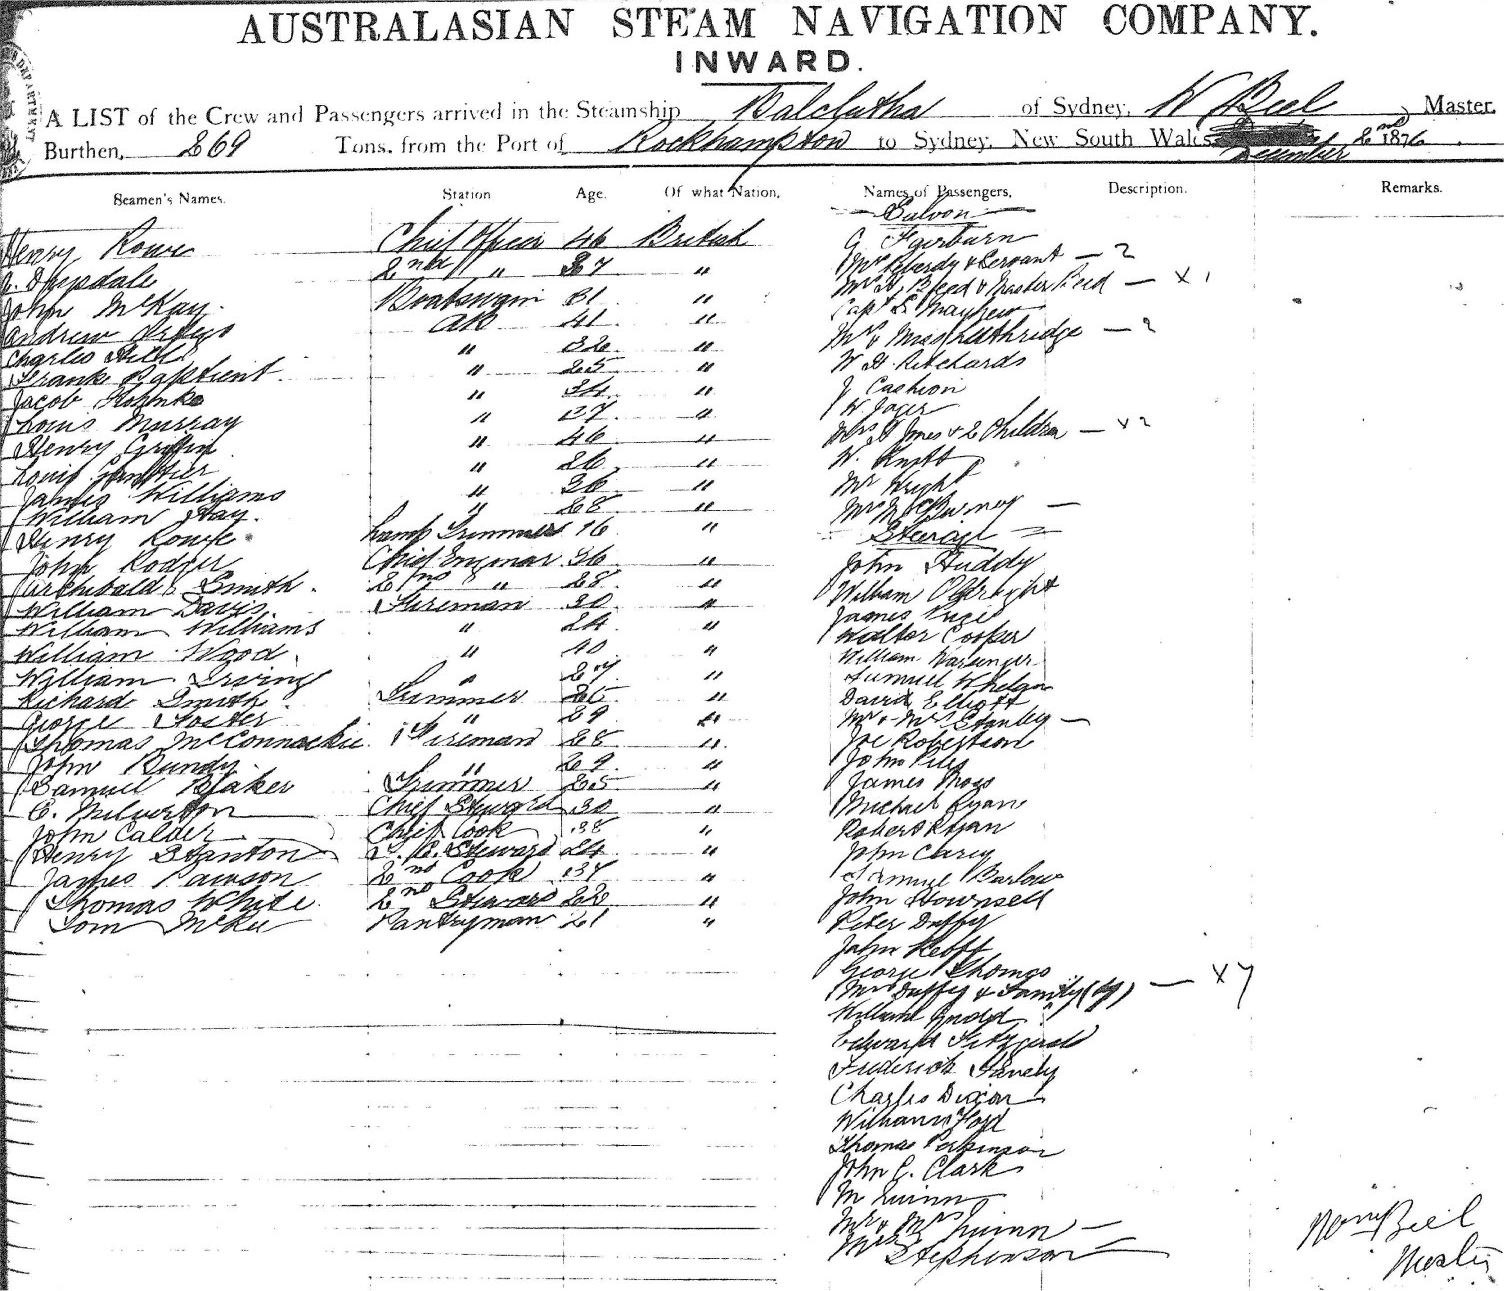 AUSTRALASIAN STEAM NAVIGATION COMPANY.
INWARD.
A LIST of the Crew and Passengers arrived in the Steamship Balclutha of Sydney, W Beel Master,
Burthen, 269 Tons, from the Port of Rockhampton to Sydney, New South Wales December 2nd 1876
Seamen's Names. Station Age. Of what Nation, Names of Passengers, Description. Remarks.
Saloon
Henry Rowe Chief Officer 46 British
Drysdale 2nd " 27 "
John McKay Boatswain 31 "
Andrew AB 41 "
Charles Hill " 32 "
Frank " 25 "
Jacob " 34 "
Louis Murray " 37 "
Henry Griffin " 46 "
Louis " 26 "
James Williams " 36 "
William Hay. " 28 "
Henry Rowe Lamp Trimmer 16 "
John Rodger Chief Enginar 36 "
Archibald Smith. 2nd " 28 "
William Davis. Fireman 30 "
William Williams " 24 "
William Wood " 40 "
William Irving " 27 "
Richard Smith. Trimmer 25 "
George Foster " 29 "
Thomas McConnackie Fireman 28 "
John Bundy " 29 "
Samuel Blaker Trimmer 25 "
E. Milverton Chief Steward 30 "
John Calder Chief Cook 38 "
Henry Stanton Steward 24 "
James Pawson 2nd Cook 37 "
Thomas White 2nd Steward 22 "
Tom McKee Pantryman 21 "
G Fairburn
Mr Peberdy & Servant — 2
Mr H Beed & Master Beed — x 1
Capt S Mayhew
Mr & Miss Lethridge — 2
W H Ritchards
J Cashion
W Jager
Mrs H Jones & 2 Children — x 2
W. Knott
Mr Wright
Mrs McBurney —
Steerage
John Huddy
William
James Price
Walter Cooper
William
Samuel Whelan
David Elliott
Mr & Mrs Stanley —
Joe Robertson
John Piles
James Moss
Michael Ryan
Robert Ryan
John Carey
Samuel Barlow
John Hownsell
Peter Duffy
John Keoft
George Thomas
Mrs Duffy & Family (7) — x 7
William
Edward Fitzgerald
Frederick
Charles Dixon
William Ford
Thomas Perkinson
John C. Clark
M Quinn
Mr & Mrs Quinn —
Mrs Stephenson —
Beel
Master